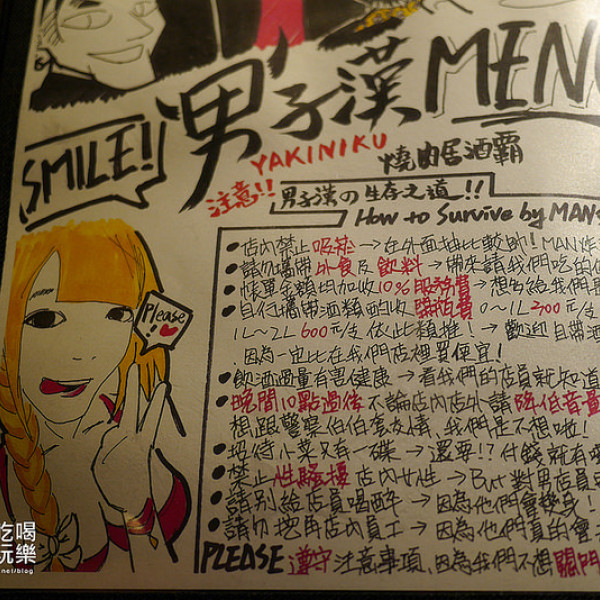 男子漢 MENU
SMILE!
YAKINIKU
燒肉居酒霸
注意!! 男子漢の生存之道!!
How to Survive by MAN
Please!
●店內禁止吸菸→在外面抽比較帥!MAN
●請勿攜帶外食及飲料→帶來請我們吃的
●帳單金額均加收10%服務費→想名
●自行攜帶酒類酌收 0~1L300元/
1L~2L 600元/支 依此類推!→歡迎自帶酒
因為一定比在我們店裡買便宜!
●飲酒過量有害健康→看我們的店員就知道
●晚間10點過後不論店內店外請降低音量
想跟警察伯伯套交情、我們是不想啦!
●招待小菜只有一碟→還要!?付錢就有
●禁止性騷擾店內女性→But 對男店員
●請別給店員喝醉→因為他們會變身!
●請勿挖角店內員工→因為他們真的會
PLEASE 遵守注意事項、因為我們不想關門
吃喝
玩樂
.net/blog